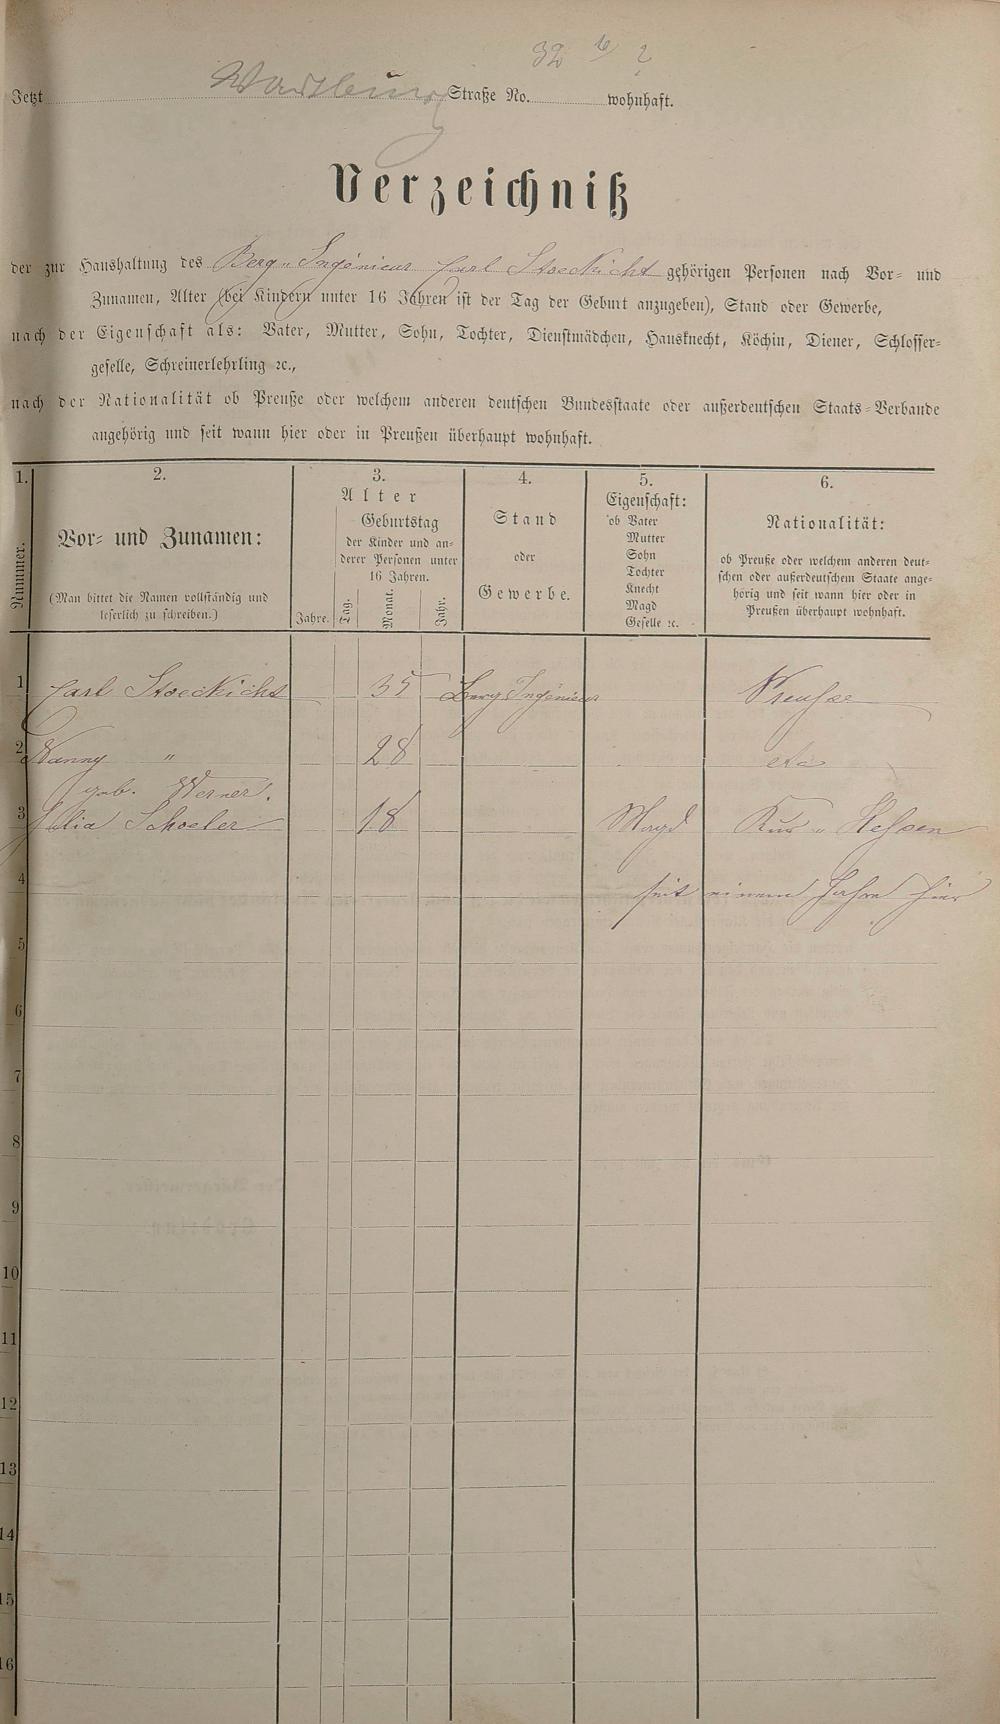 32
Jetzt Wartburg Straße No. wohnhaft.
Verzeichniß
der zur Haushaltung des Berg-Ingénieur Carl Stoeckicht gehörigen Personen nach Vor- und
Zunamen, Alter (bei Kindern unter 16 Jahren ist der Tag der Geburt anzugeben), Stand oder Gewerbe,
nach der Eigenschaft als: Vater, Mutter, Sohn, Tochter, Dienstmädchen, Hausknecht, Köchin, Diener, Schlosser-
geselle, Schreinerlehrling ꝛc.,
nach der Nationalität ob Preuße oder welchem anderen deutschen Bundesstaate oder außerdeutschen Staats-Verbande
angehörig und seit wann hier oder in Preußen überhaupt wohnhaft.
1.
Nummer.
2.
Vor- und Zunamen:
(Man bittet die Namen vollständig und
leserlich zu schreiben.)
3.
Alter
Geburtstag
der Kinder und an-
derer Personen unter
16 Jahren.
Jahre.
Tag.
Monat.
Jahr.
4.
Stand
oder
Gewerbe.
5.
Eigenschaft:
ob Vater
Mutter
Sohn
Tochter
Knecht
Magd
Geselle ꝛc.
6.
Nationalität:
ob Preuße oder welchem anderen deut-
schen oder außerdeutschem Staate ange-
hörig und seit wann hier oder in
Preußen überhaupt wohnhaft.
1 Carl Stoeckicht 35 Berg Ingénieur Preuße
2 Nanny " 28
geb. Werner.
3 Julia Schoeler 18 Magd Kur-Hessen
4 seit einem Jahre hier
5
6
7
8
9
10
11
12
13
14
15
16